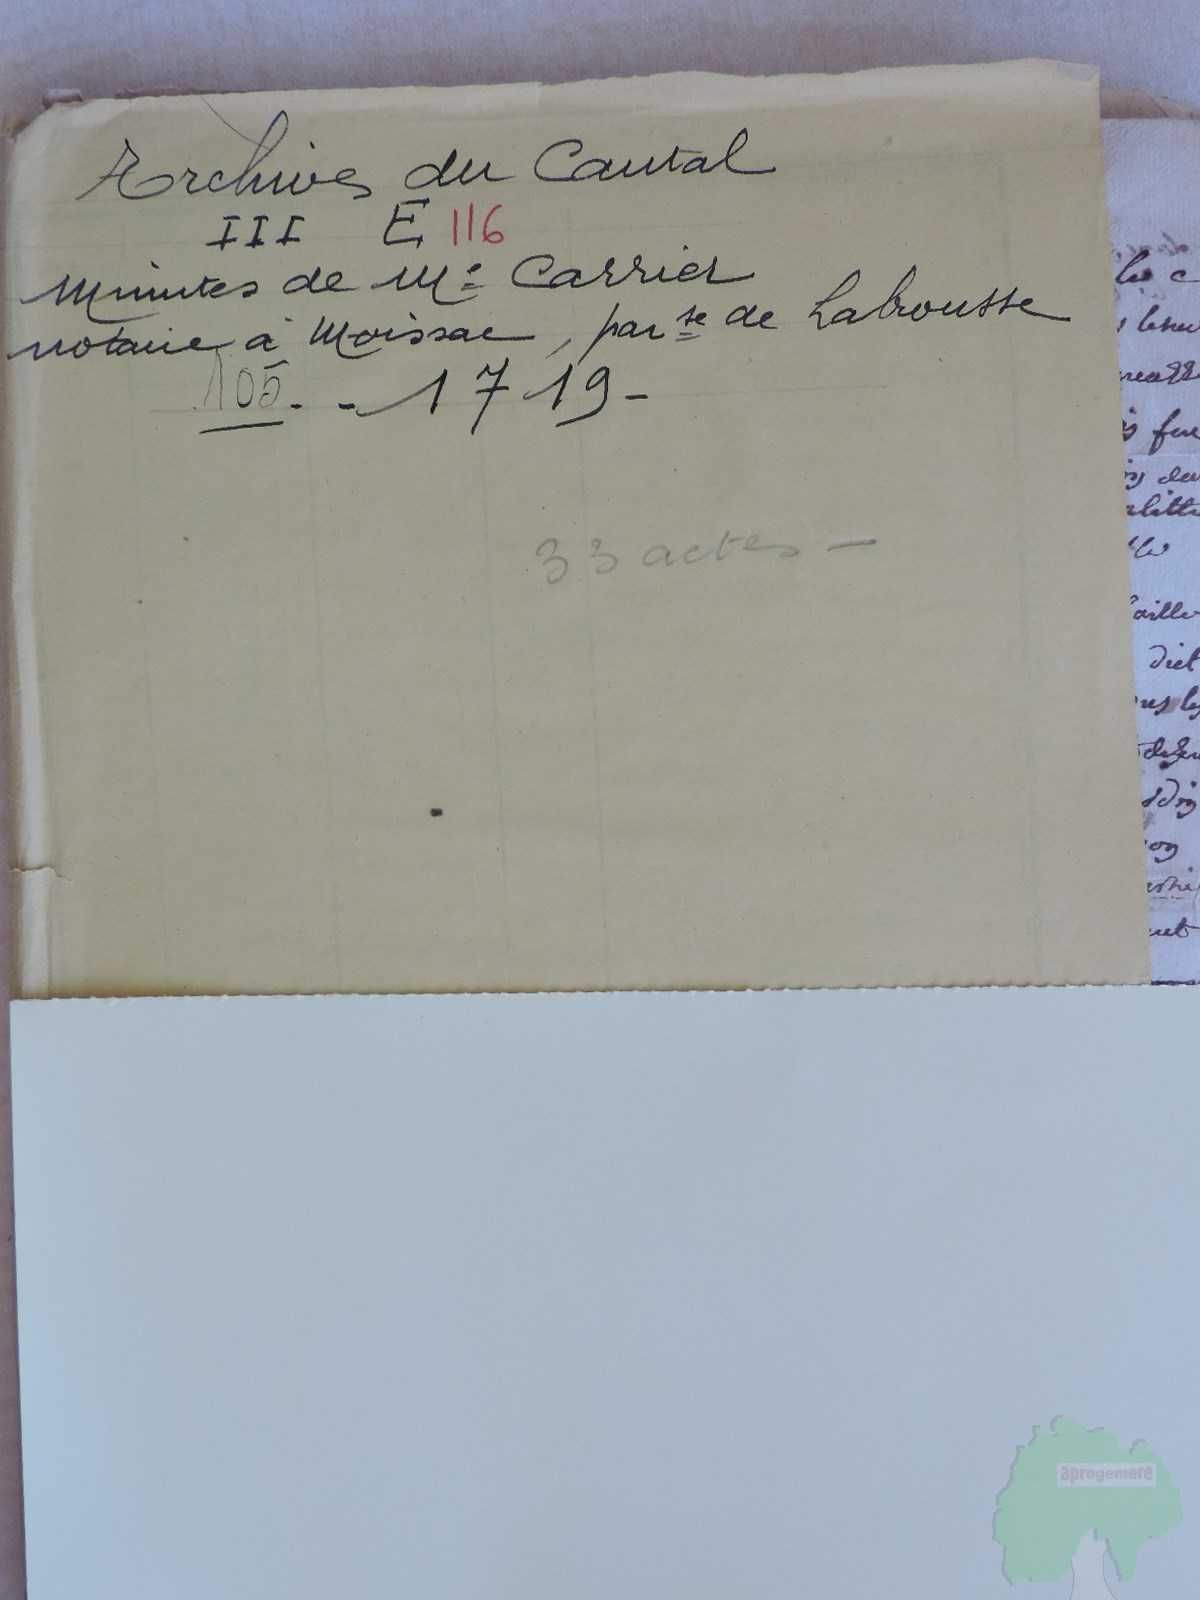 Archives du Cantal
III E 116
Minutes de Me Carrier
notaire à Moissac, par se de Labrousse
105. - 1719 -
33 actes -
dict
aprogemere